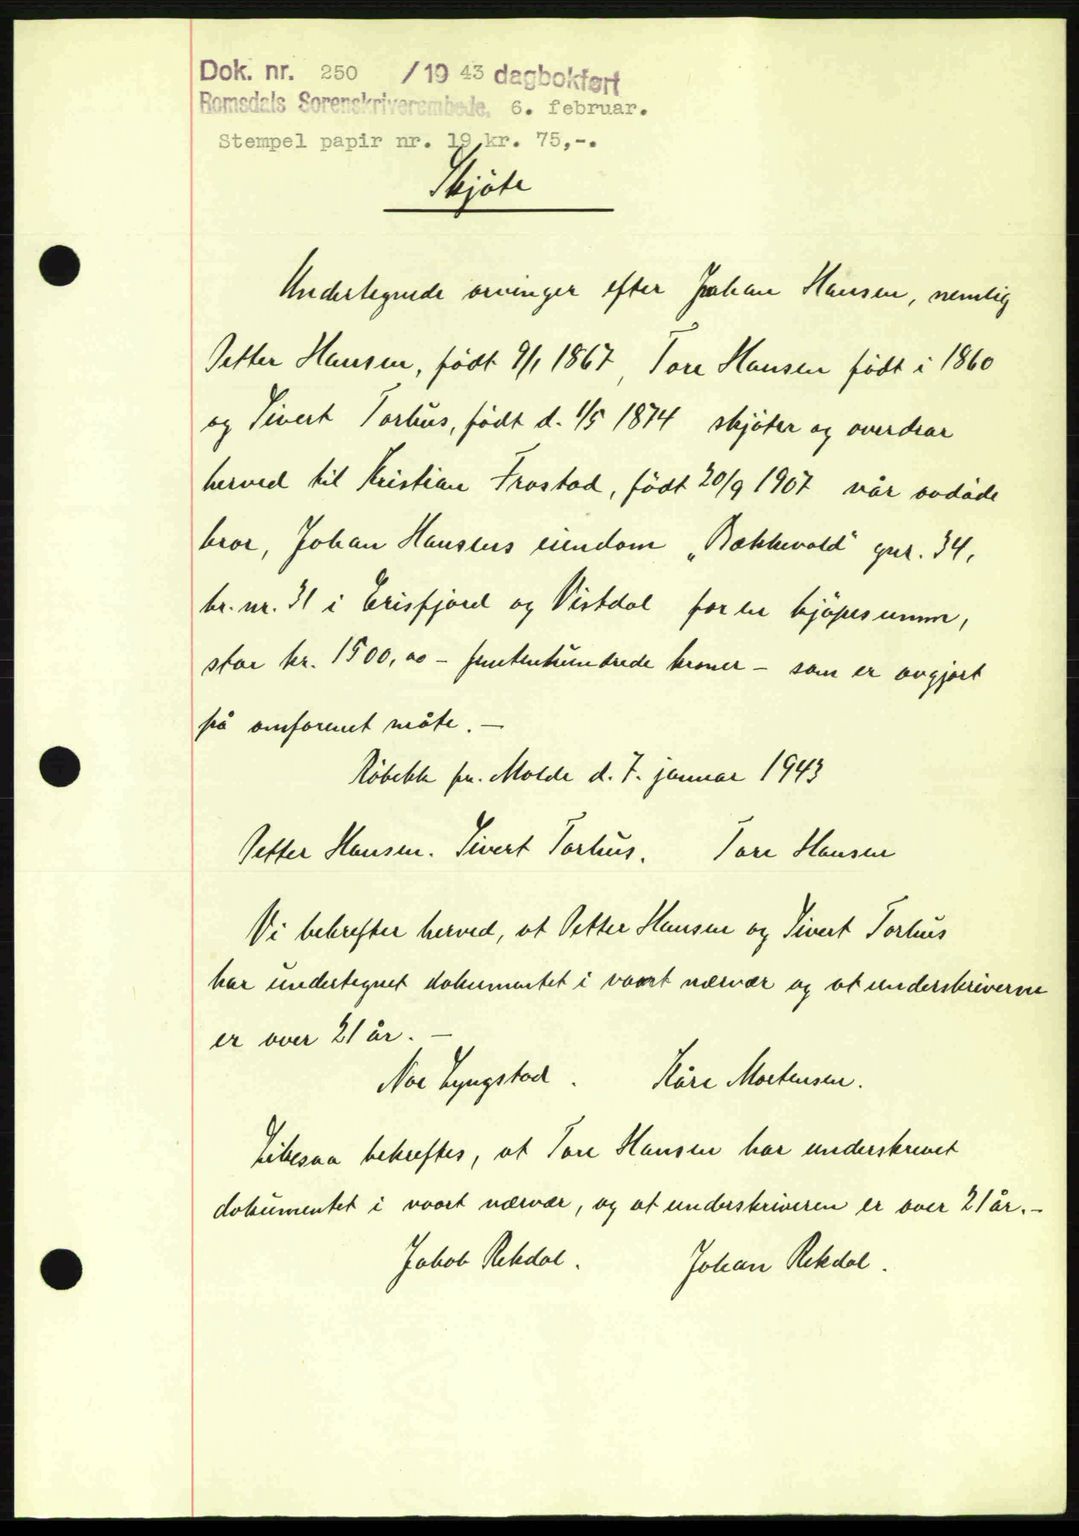 Dok. nr. 250 /19 43 dagbokført
Romsdals Sorenskriverembede, 6. februar.
Stempel papir nr. 19 kr. 75,-.
Skjöte
Undertegnede arvinger efter Johan Hansen, nemlig
Petter Hansen, födt 9/1 1867, Tore Hansen födt i 1860
og Sivert Torhus, födt d. 1/5 1874 skjöter og overdrar
herved til Kristian Frostad, födt 20/9 1907 vår avdöde
bror, Johan Hansens eiendom „Bækkevold" gnr. 34,
br. nr. 31 i Erisfjord og Vistdal for en kjöpesumm,
stor kr. 1500,00 – femtenhundrede kroner – som er avgjort
på omforenet måte. —
Röbekk pr. Molde d. 7. januar 1943
Petter Hansen. Sivert Torhus. Tore Hansen
Vi bekrefter herved, at Petter Hansen og Sivert Torhus
har undertegnet dokumentet i vaart nærvær og at underskriverne
er over 21 år. —
Noe Lyngstad. Kåre Mortensen.
Likesaa bekreftes, at Tore Hansen har underskrevet
dokumentet i vaart nærvær, og at underskriveren er over 21 år. –
Jakob Rekdal. Johan Rekdal.